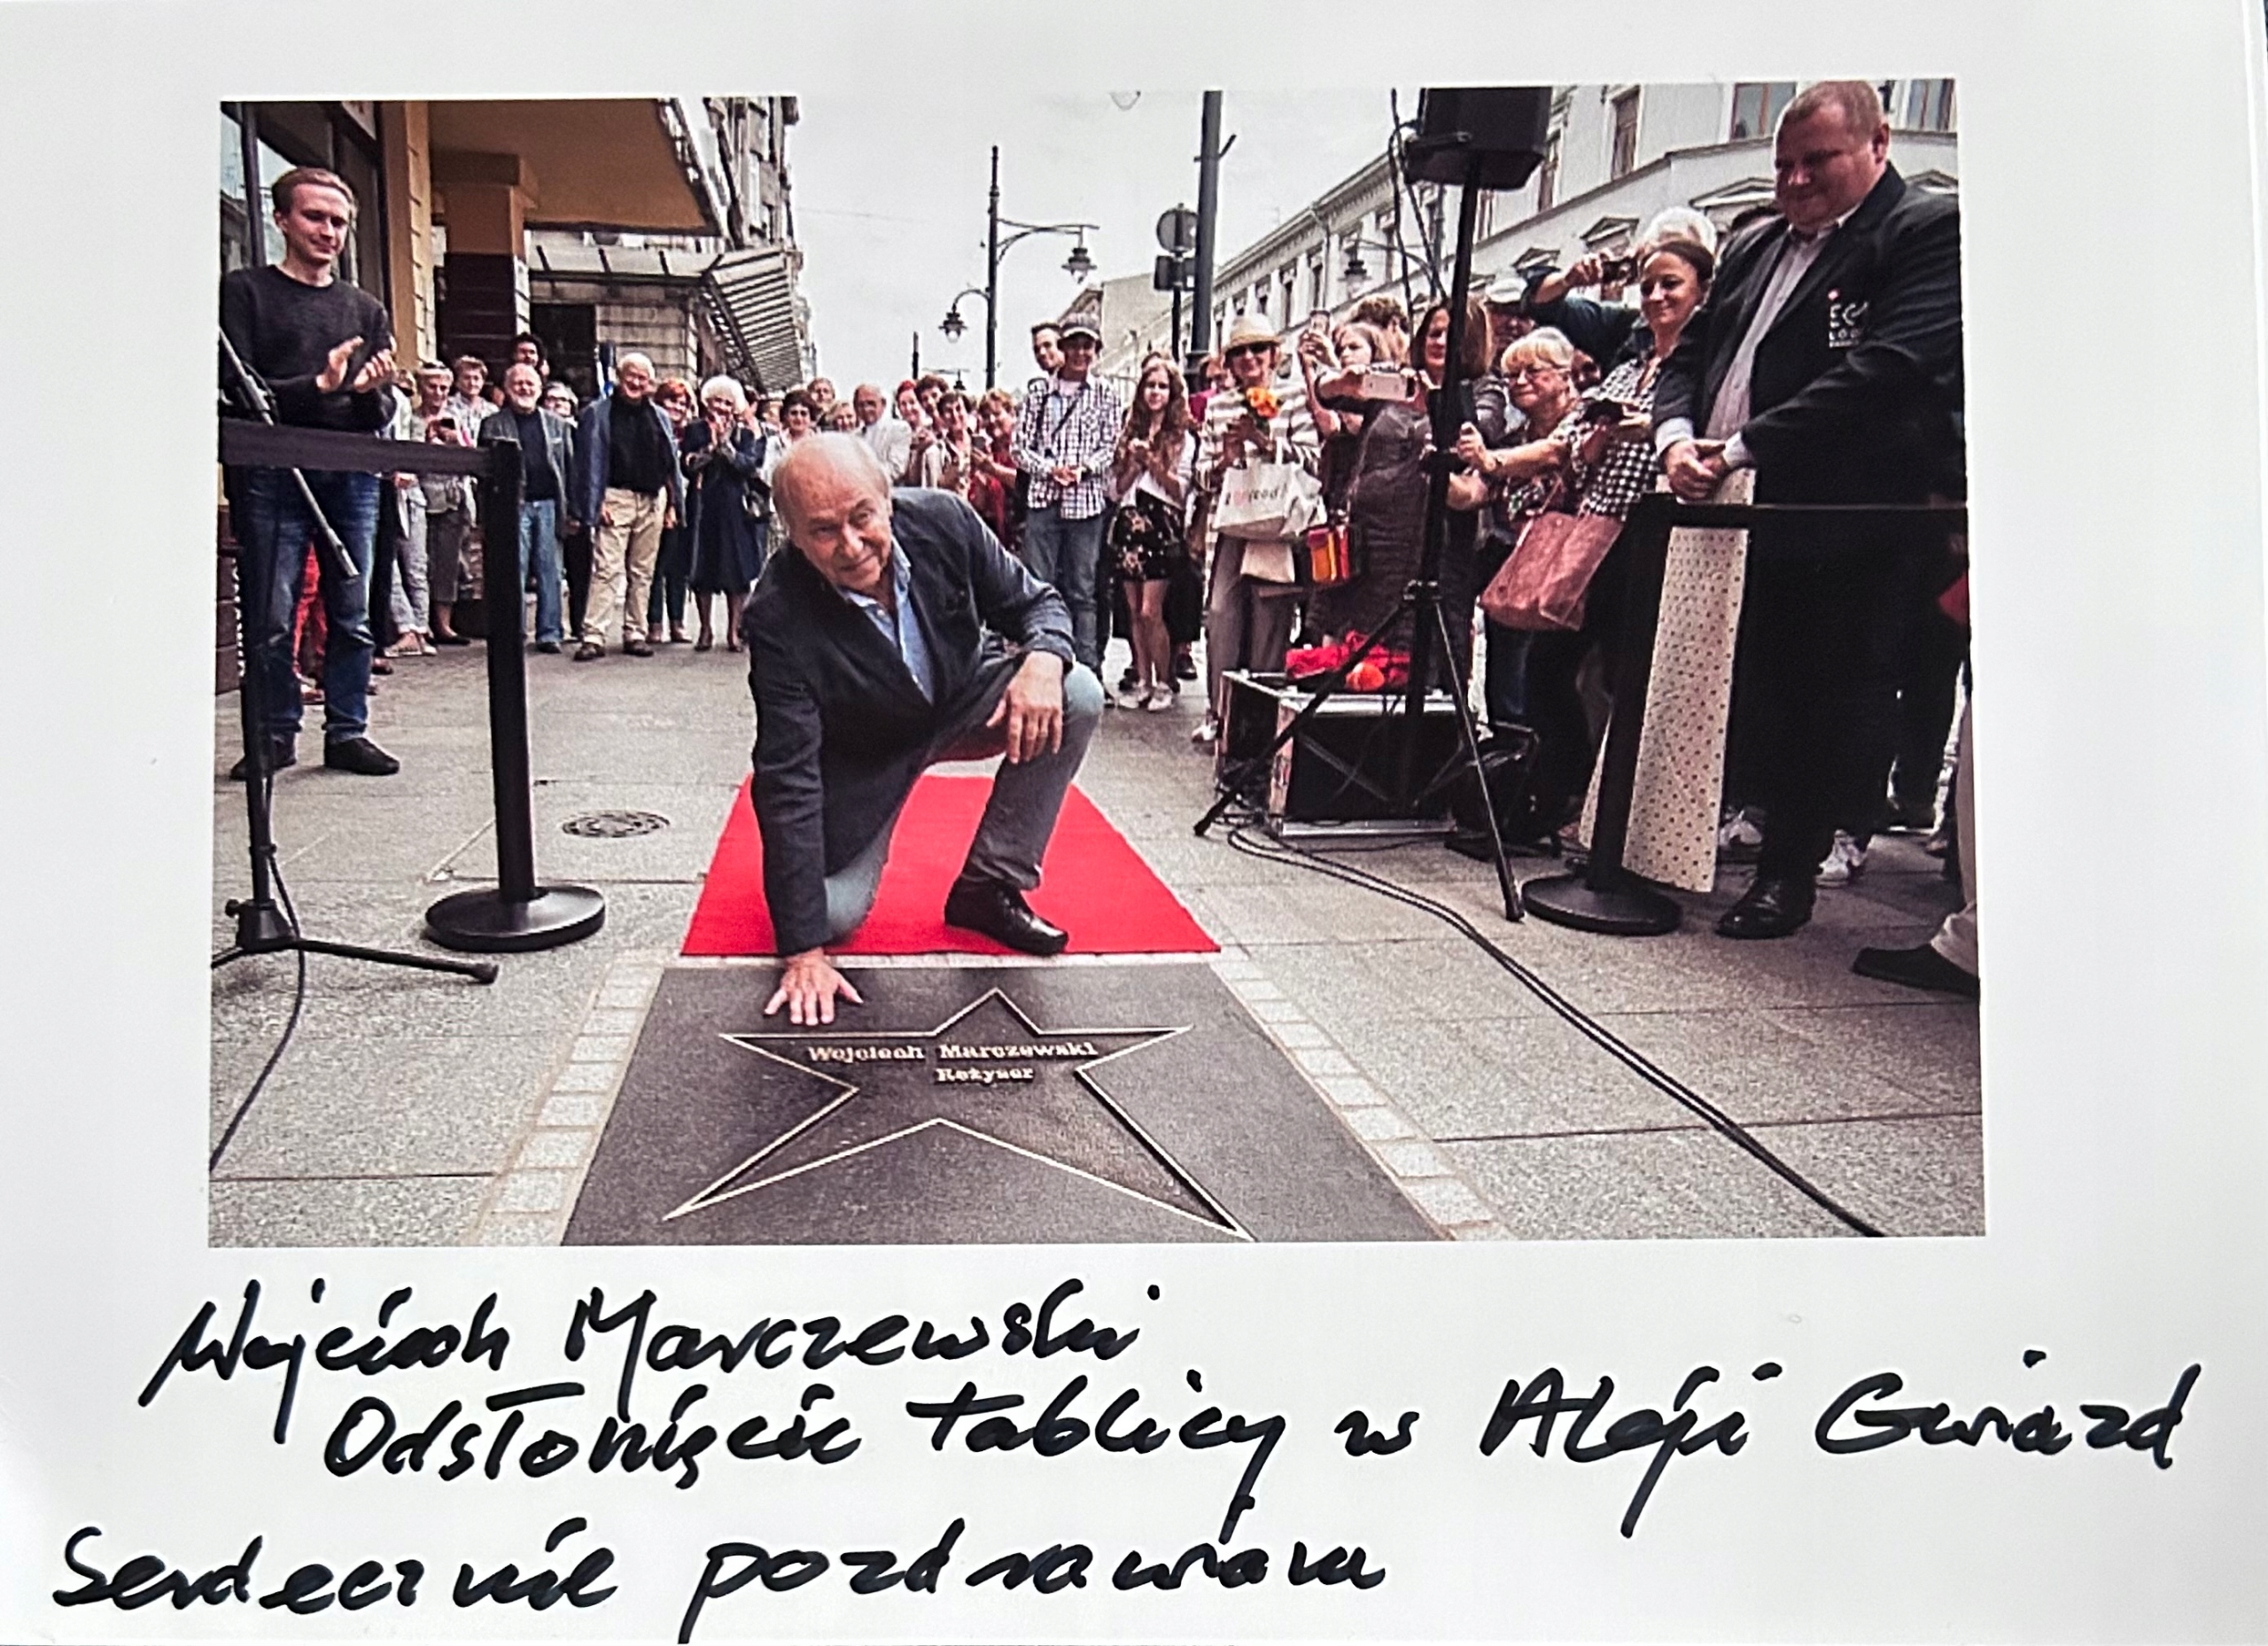 EC1
ŁÓDŹ
Wojciech Marczewski
Reżyser
Wojciech Marczewski
Odsłonięcie tablicy w Aleji Gwiazd
Serdecznie pozdrawiam